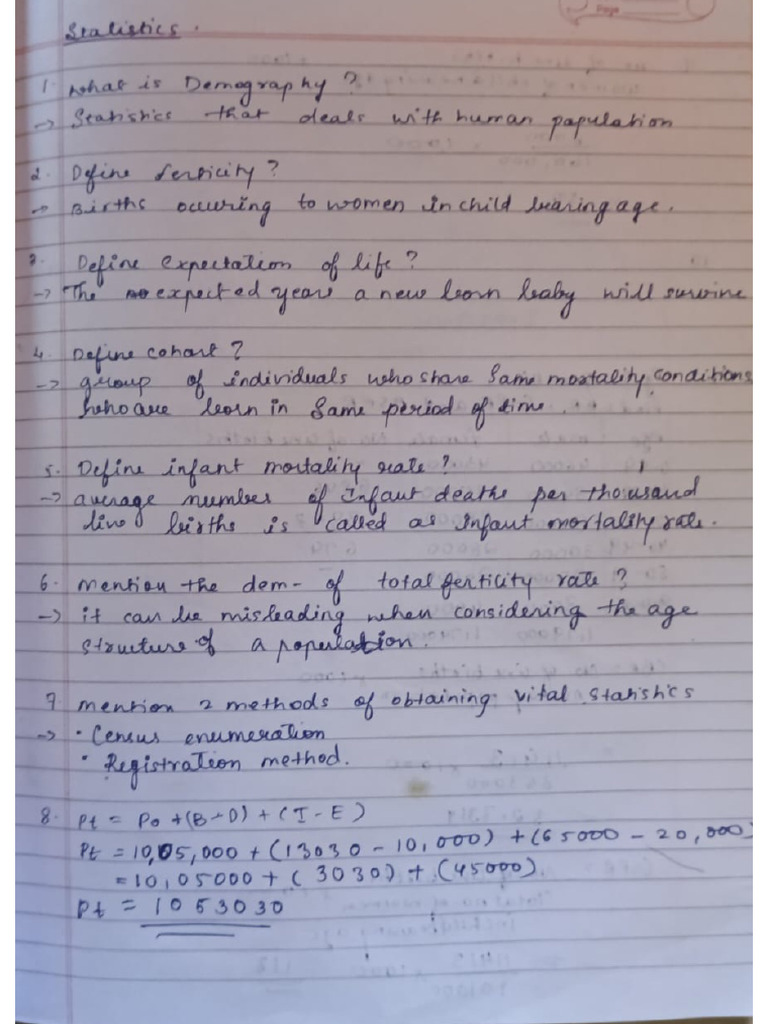 Page
Statistics.
1. What is Demography?
→ Statistics that deals with human population
2. Define ferticity?
→ Births occuring to women in child bearing age.
3. Define expectation of life?
→ The expected years a new born baby will survive
4. Define cohort?
→ group of individuals who share same mortality conditions
who are born in same period of time.
5. Define infant mortality rate?
→ average number of infant deaths per thousand
live births is called as infant mortality rate.
6. mention the dem- of total ferticity rate?
→ it can be misleading when considering the age
structure of a population.
7. mention 2 methods of obtaining vital statistics
→ • Census enumeration
• Registration method.
8. Pt = Po + (B-D) + (I-E)
Pt = 10,05,000 + (13030 - 10,000) + (65000 - 20,000)
= 10,05000 + (3030) + (45000)
Pt = 1053030